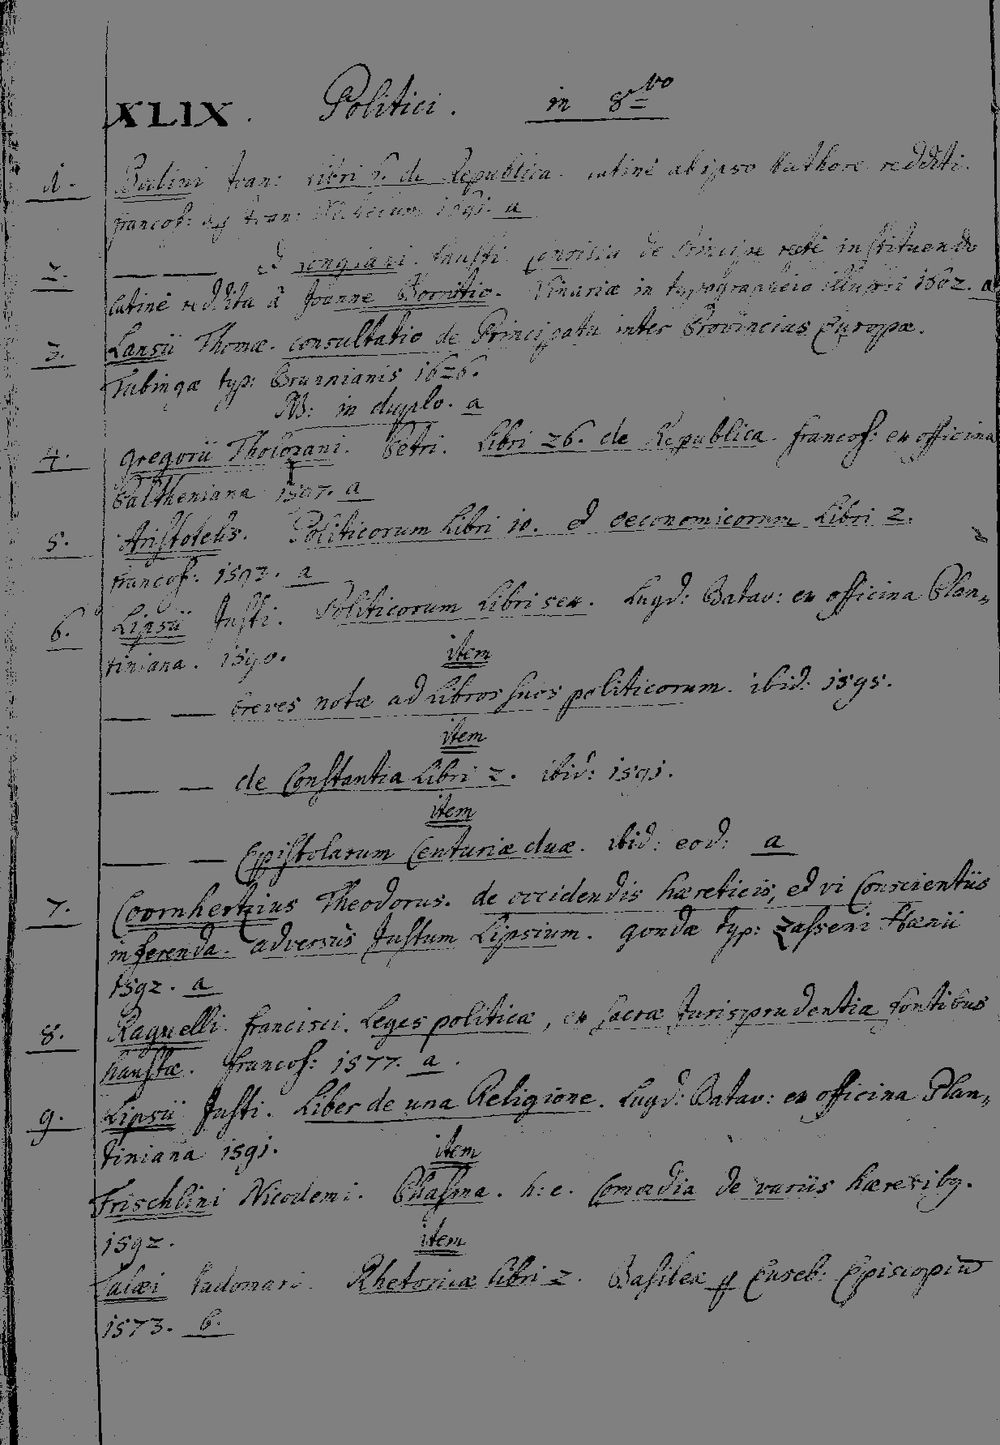 XLIX. Politici. in 8vo
1. Bodini Joan: Libri 6. de Republica. latine ab ipso Authore redditi.
francof: Joan: 1591. a
2. Consilia de Principe recte instituendo
latine reddita â Joanne Bornitio. Vinariæ in typographeio illustri 1602. a
3. Lansii Thomæ. consultatio de Principatu inter Provincias Europæ.
Tubingæ typ: Brunnianis 1626.
NB: in duplo. a
4. Gregorii Tholozani. Petri. Libri 26. de Republica. francof: ex officina
Paltheniana 1597. a
5. Aristotelis. Politicorum Libri 10. et oeconomicorum Libri 2.
francof: 1593. a
6. Lipsii Justi. Politicorum Libri sex. Lugd: Batav: ex officina Plan-
tiniana. 1590.
item
breves notæ ad Libros suos politicorum. ibid: 1595.
item
de Constantia Libri 2. ibid: 1591.
item
Epistolarum Centuriæ duæ. ibid: eod: a
7. Coornhertzius Theodorus. de occidendis hæreticis, et vi Conscientiis
inferenda. adversus Justum Lipsium. goudæ typ: Zasseni Hœnii
1592. a
8. Raguelli francisci. Leges politicæ, ex sacræ Jurisprudentiæ fontibus
haustæ. francof: 1577. a.
9. Lipsii Justi. Liber de una Religione. Lugd: Batav: ex officina Plan-
tiniana 1591.
item
Frischlini Nicodemi. Phasma. h: e. Comœdia de variis hæresibq.
1592.
item
Talæi Audomari. Rhetoricæ Libri 2. Basileæ Euseb: Episcopiū
1573. b.